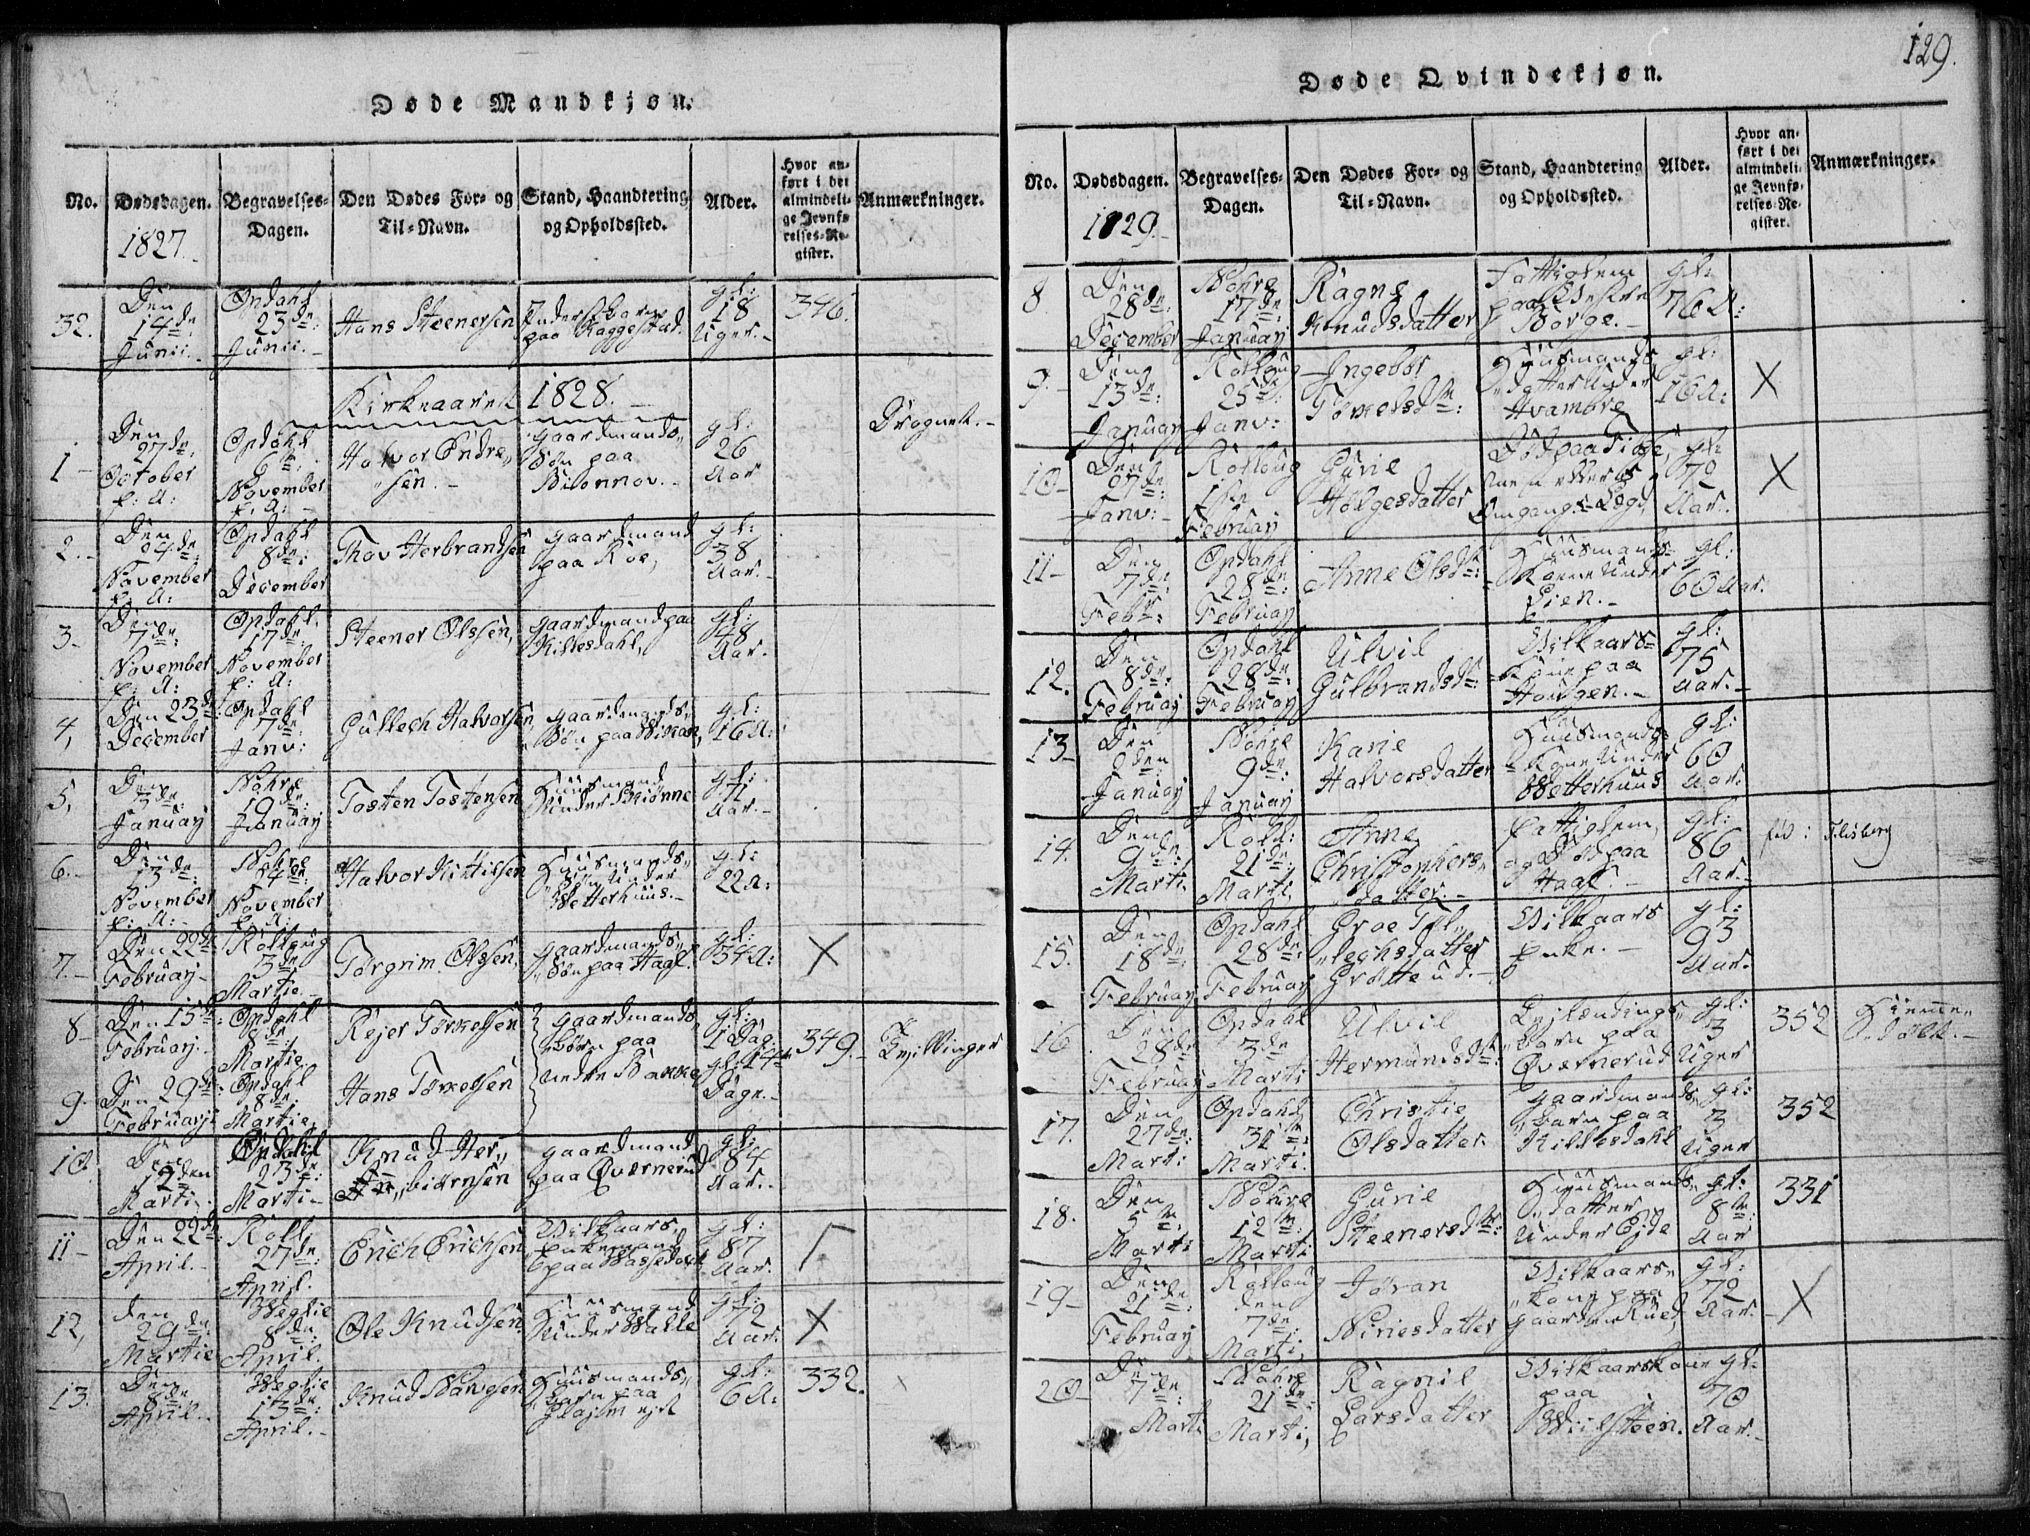 Døde Mandkjøn.
No.
Dødsdagen.
1827.
Begravelses-
Dagen.
Den Dødes For- og
Til-Navn.
Stand, Haandtering
og Opholdssted.
Alder.
Hvor an-
ført i det
almindeli-
ge Jevnfø-
relses-Re-
gister.
Anmærkninger.
32.
Den
14de
Junii.
Opdahl
23de:
Junii.
Hans Steenersen
paa Raggestad.
gl:
18
Uger.
346.
Kirkeaaret 1828.
1
Den
27de,
October
f: A:
Opdahl
6te,
November
f: A:
Halvor Endre„
„sen.
Gaardmands„
Søn paa
gl:
26
Aar
Drognet.
2.
Den
24de
November
f: A:
Opdahl
8de:
December
Thov Herbrandsen
Gaardmand
paa Roe,
gl:
38
Aar.
3.
Den
7de:
November
f: A:
Opdahl,
17de:
November
f: A:
Steener Olssen,
Gaardmand paa
Killesdahl,
gl:
48
Aar.
4,
Den 23de:
December
Opdahl
7de:
Janv:
Gullech Halvorsen
Gaardmands„
Søn paa
gl:
16 A:
5,
Den
3de:
Januarj
Nohre
19de:
Januarj
Tosten Tostensen
Huusmand
under
gl:
71
Aar.
6.
Den
13de:
November
f: A:
Nohre
November
f: A:
Halvor Kittilsen
Huusmands„
Søn under
Wetterhuus.
gl:
22 A:
7.
Den 22de
Februarj
Rollaug
3de
Martie
Torgrim Olssen,
Gaardmands„
Søn paa Haaf.
gl:
34 A:
X
8
Den 15de:
Februarj.
Opdahl
8de:
Martie
Rejer Torkelsen
Gaardmands
Børn paa
nedre Bakke
gl:
1 Dag.
349.
Tvillinger
9.
Den 29de:
Februarj:
Opdahl
8de:
Martie,
Hans Torkelsen
gl: 14
Dage.
10.
Den
12den
Marti.
Opdahl
23de:
Marti
Knud Her„
„biørnsen
Gaardmand
paa Qværnerud
gl:
84
Aar.
11
Den 22de:
April.
Roll:
27de:
April.
Erich Erichsen
Vilkaars
gl:
87
Aar.
12,
den
29de:
Martie
Weglie
8de:
April.
Ole Knudsen
Huusmand
under
gl:
72
Aar.
X
13.
Den
8de:
April.
Weglie
13de:
April.
Knud
Huusmands„
Barn paa
gl:
6 A:
332.
129.
Døde Qvindekjøn.
No.
Dødsdagen.
1829.
Begravelses-
Dagen.
Den Dødes For- og
Til-Navn.
Stand, Haandtering
og Opholdssted.
Alder.
Hvor an-
ført i det
almindeli-
ge Jevnfø-
relses-Re-
gister.
Anmærkninger.
8
Den
28de:
December
Nohre
17de:
Januarj
Ragne
Knudsdatter
Fattiglem
paa
Borge.
gl:
76 A:
9.
Den
13de:
Januarj
Rollaug
25de:
Janv:
Ingebor
Torkelsdtr:
Huusmands
datter under
Hvambre
gl:
16 A:
X
10
Den
27de:
Janv:
Rollaug
1ste
Februarj
Gurie
Holgesdatter
Omgangs-Lægd
gl:
72
Aar.
X
11
Den
7de
Febr:
Opdahl
28de:
Februarj
Anne Olsdtr:
Huusmands
Kone under
Lien.
gl:
60 Aar.
12.
Den
8de:
Februarj
Opdahl
28de:
Februarj
Ulvil
Gulbrandsdtr:
Vilkaars=
paa
Haugen.
gl:
75
Aar.
13
Den
2den
Januarj
Nohre
9de:
Januarj
Karie
Halvorsdatter
Huusmands
Kone under
Wetterhuus
gl:
60
Aar.
14.
Den
9de:
Marti.
Roll:
21de:
Marti,
Anne
Christophers„
datter.
Fattiglem,
paa
Haaf.
gl:
86
Aar.
fød: Flisberg
15.
Den
18de:
Februarj
Opdahl
28de:
Februarj
Groe Tol„
„lechsdatter
Grotterud.
Vilkaars
Enke.
gl:
93
Aar.
16
Den
28de
Februarj
Opdahl
3de
Marti
Ulvil
Hermundsdtr:
Barn paa
Qværnerud
gl:
3
Uger
352
Hiemme„
døbt.
17.
Den
27de:
Marti
Opdahl
31te:
Marti.
Christie
Olsdatter
Gaardmands„
Barn paa
Killesdahl
gl:
3
Uger
352
18.
Den
5te.
Marti
Nohre
12te
Marti
Gurie
Steenersdtr:
Huusmands
datter
under Eide
gl:
8te
Aar
331
19
Den
21de:
Februarj
Rollaug
den
7de.
Marti,
Joran
Niriesdatter
Vilkaars„
Kone paa
Gaarden Ruud,
gl:
72
Aar.
X
20
Den
7de:
Marti
Nohre
21de
Marti,
Ragnil
Larsdatter
Vilkaarskone
paa
gl:
70
Aar.